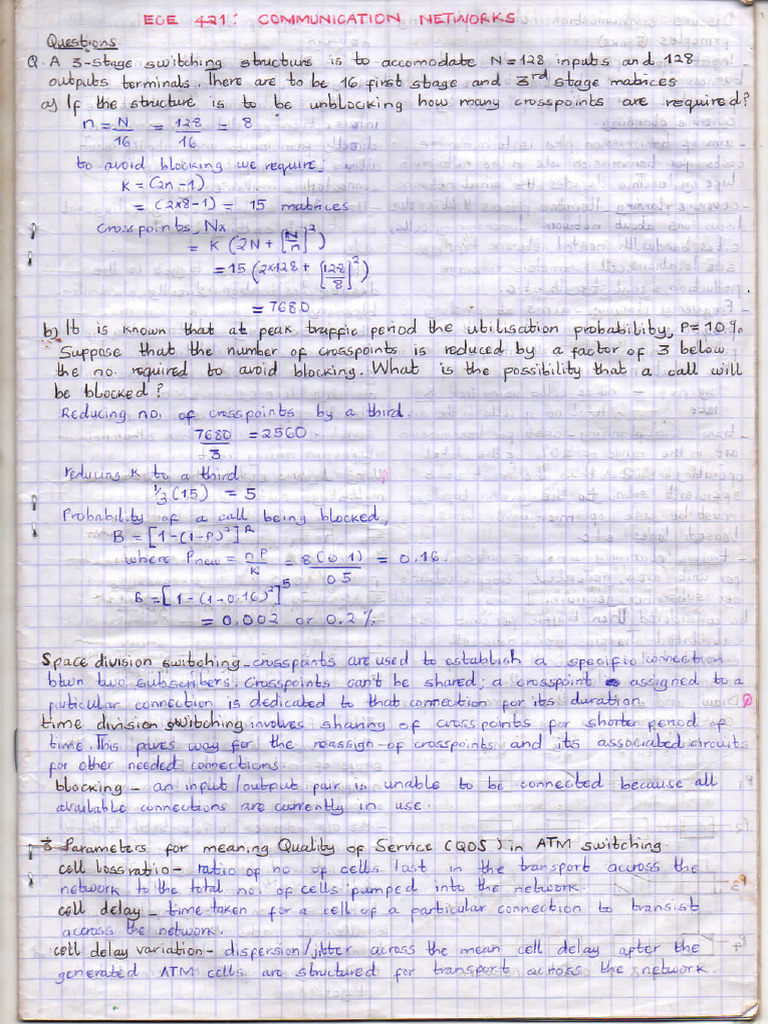 ECE 421: COMMUNICATION NETWORKS
Questions
Q. A 3-stage switching structure is to accomodate N=128 inputs and 128
outputs terminals. There are to be 16 first stage and 3rd stage matrices
a) If the structure is to be unblocking how many crosspoints are required?
n = N/16 = 128/16 = 8
to avoid blocking we require;
K = (2n-1)
= (2x8-1) = 15 matrices
Crosspoints, Nx
= K (2N + [N/n]²)
= 15 (2x128 + [128/8]²)
= 7680
b) It is known that at peak traffic period the utilisation probability, P=10%.
Suppose that the number of crosspoints is reduced by a factor of 3 below
the no. required to avoid blocking. What is the possibility that a call will
be blocked?
Reducing no. of crosspoints by a third.
7680/3 = 2560.
reducing K to a third
1/3 (15) = 5
Probability of a call being blocked,
B = [1-(1-P)²]^k
where Pnew = nP/K = 8(0.1)/05 = 0.16
B = [1-(1-0.16)²]^5
= 0.002 or 0.2%
Space division switching - crosspoints are used to establish a specific connection
btwn two subscribers. Crosspoints can't be shared; a crosspoint assigned to a
particular connection is dedicated to that connection for its duration.
time division switching involves sharing of crosspoints for shorter period of
time. This paves way for the reassign-of crosspoints and its associated circuits
for other needed connections.
blocking - an input/output pair is unable to be connected because all
available connections are currently in use.
3 Parameters for meaning Quality of Service (QOS) in ATM switching.
cell loss ratio - ratio of no of cells lost in the transport across the
network to the total no. of cells pumped into the network.
cell delay - time taken for a cell of a particular connection to transist
accross the network.
cell delay variation - dispersion/jitter across the mean cell delay after the
generated ATM cells are structured for transport across the network.